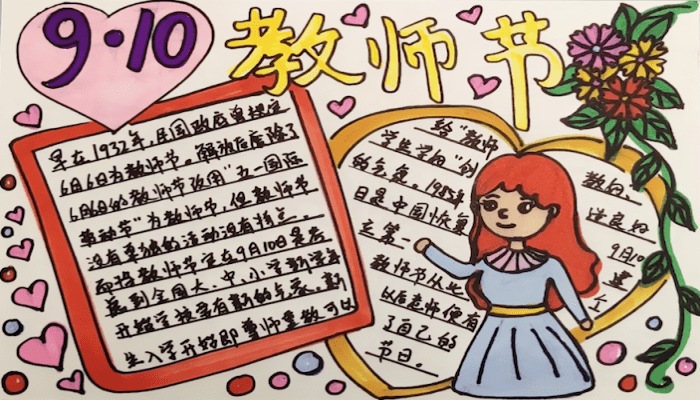 9·10 教师节
早在1932年,民国政府曾规定
6月6日为教师节。解放后废除了
6月6日的教师节改用"五一国际
劳动节"为教师节,但教师节
没有单独的活动没有特点。
而将教师节定在9月10日是考
虑到全国大、中、小学新学年
开始学校要有新的气象。新
生入学开始即尊师重教可以
给"教师
学生学的"创 造良好
的气氛。1985年 9月10
日是中国恢复 建
立第一 个
教师节从此
以后老师便有
了自己的
节日。